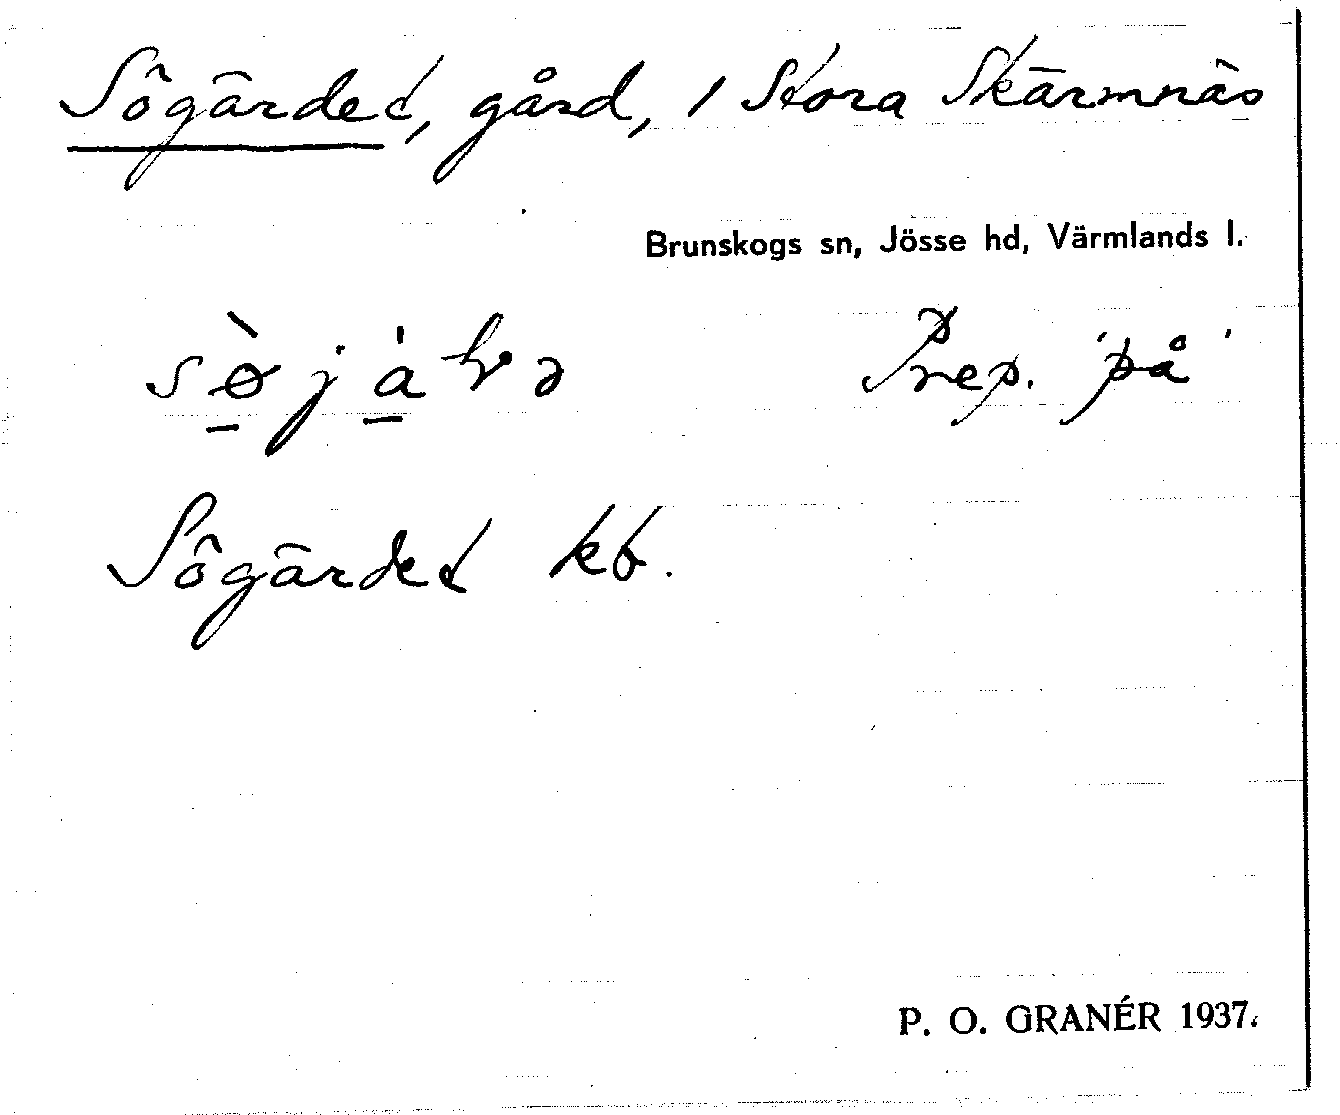 Sögärdet, gård, i Stora Skärmnäs
Brunskogs sn, Jösse hd, Värmlands l.
Prep. 'på'
Sögärdet kb.
P. O. GRANÉR 1937.